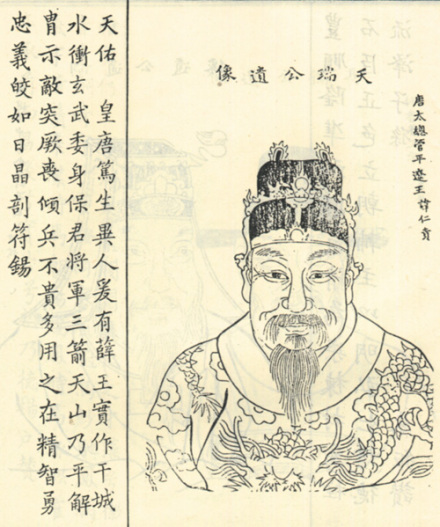 天瑞公遺像
唐太總管平遼王諱仁貴
天佑　皇唐篤生異人爰有薛王實作干城
水衝玄武委身保君將軍三箭天山乃平解
冑示敵突厥喪傾兵不貴多用之在精智勇
忠義皎如日晶剖符錫